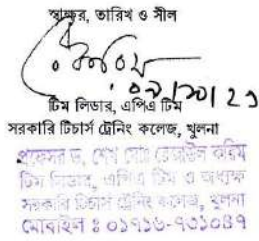 স্বাক্ষর, তারিখ ও সীল
টিম লিডার, এপিএ টিম
সরকারি টিচার্স ট্রেনিং কলেজ, খুলনা
প্রফেসর ড. শেখ মোঃ রেজাউল করিম
টিম লিডার, এপিএ টিম ও অধ্যক্ষ
সরকারি টিচার্স ট্রেনিং কলেজ, খুলনা
মোবাইল ঃ ০১৭১৬-৭৩১০৪৭